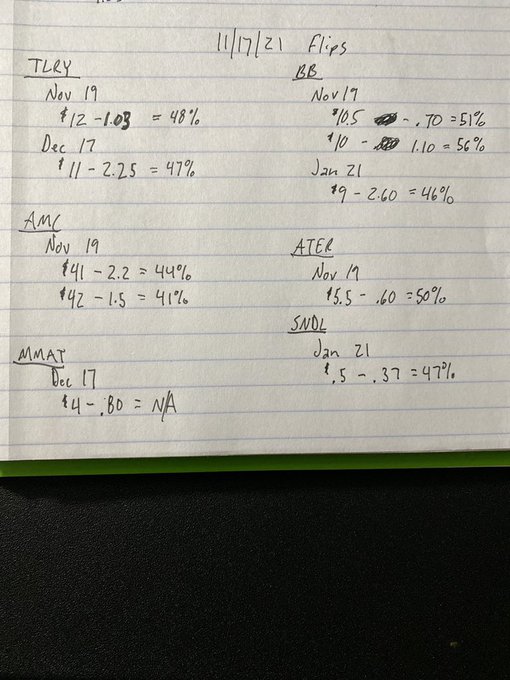 11/17/21 Flips
TLRY
Nov 19
$12 - 1.03 = 48%
Dec 17
$11 - 2.25 = 47%
AMC
Nov 19
$41 - 2.2 = 44%
$42 - 1.5 = 41%
MMAT
Dec 17
$4 - .80 = N/A
BB
Nov 19
$10.5 - .70 = 51%
$10 - 1.10 = 56%
Jan 21
$9 - 2.60 = 46%
ATER
Nov 19
$5.5 - .60 = 50%
SNDL
Jan 21
$.5 - .37 = 47%